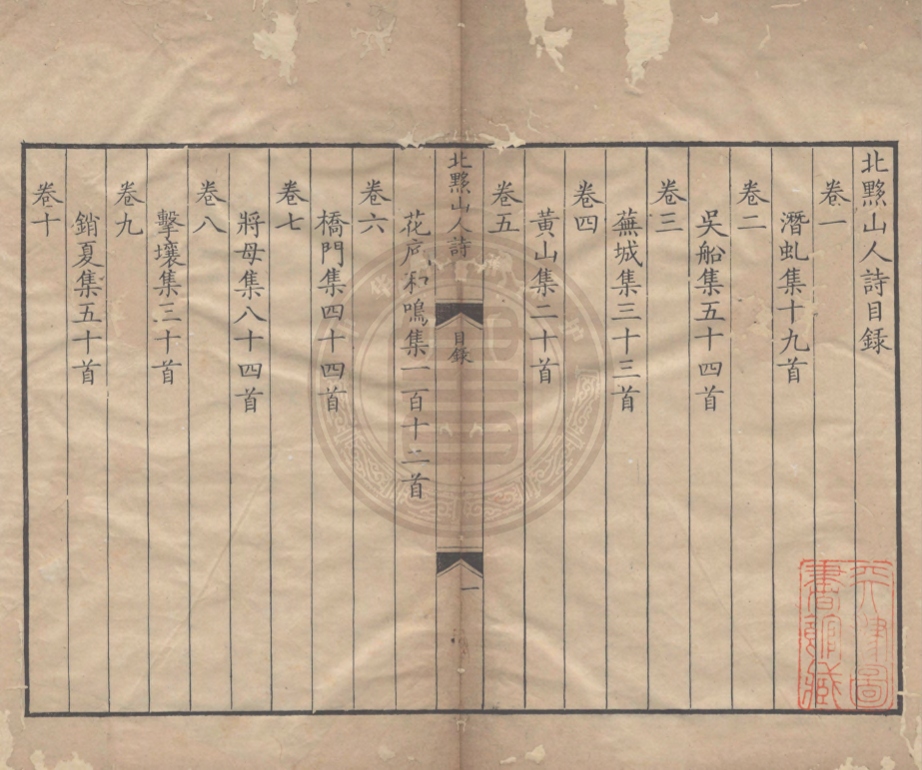 北黟山人詩目錄
卷一
潛虬集十九首
卷二
吳船集五十四首
卷三
蕪城集三十三首
卷四
黃山集二十首
卷五
北黟山人詩
目錄
一
花 和鳴集一百十二首
卷六
橋門集四十四首
卷七
將母集八十四首
卷八
擊壤集三十首
卷九
銷夏集五十首
卷十
天津圖
書館藏